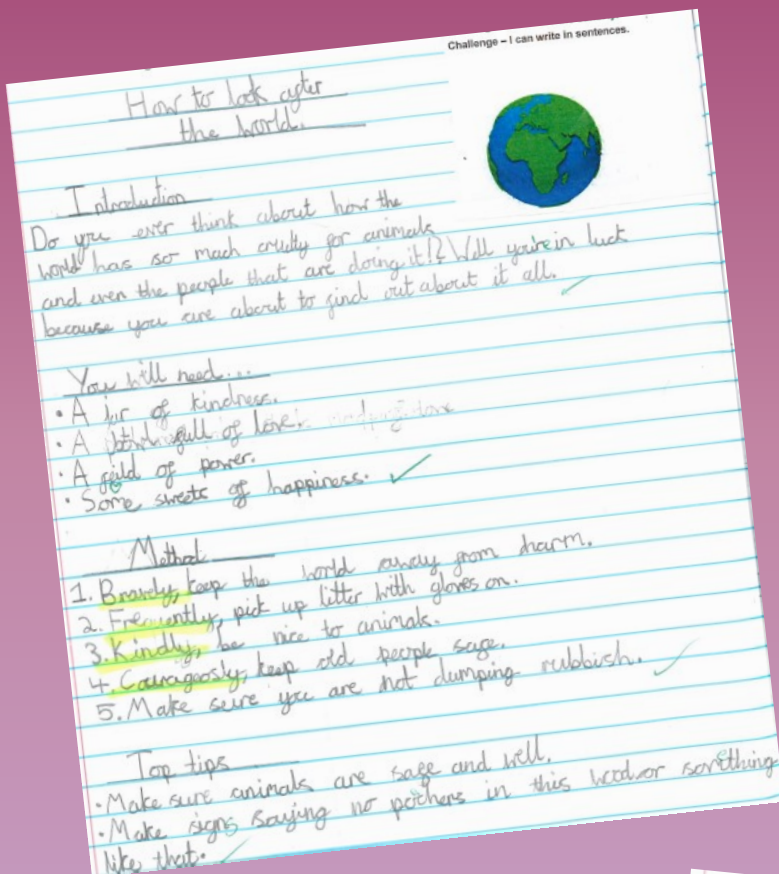 Challenge – I can write in sentences.
How to look after
the world.
Introduction
Do you ever think about how the
world has so much cruelty for animals
and even the people that are doing it!? Well you're in luck
because you are about to find out about it all.
You will need...
• A jar of kindness.
• A full of love.
• A of power.
• Some sweets of happiness.
Method
1. Bravely, keep the world away from harm.
2. Frecuently, pick up litter with gloves on.
3. Kindly, be nice to animals.
4. Couragosly, keep old people safe.
5. Make sure you are not dumping rubbish.
Top tips
• Make sure animals are safe and well.
• Make signs saying no pochers in this wood or somthing
like that.